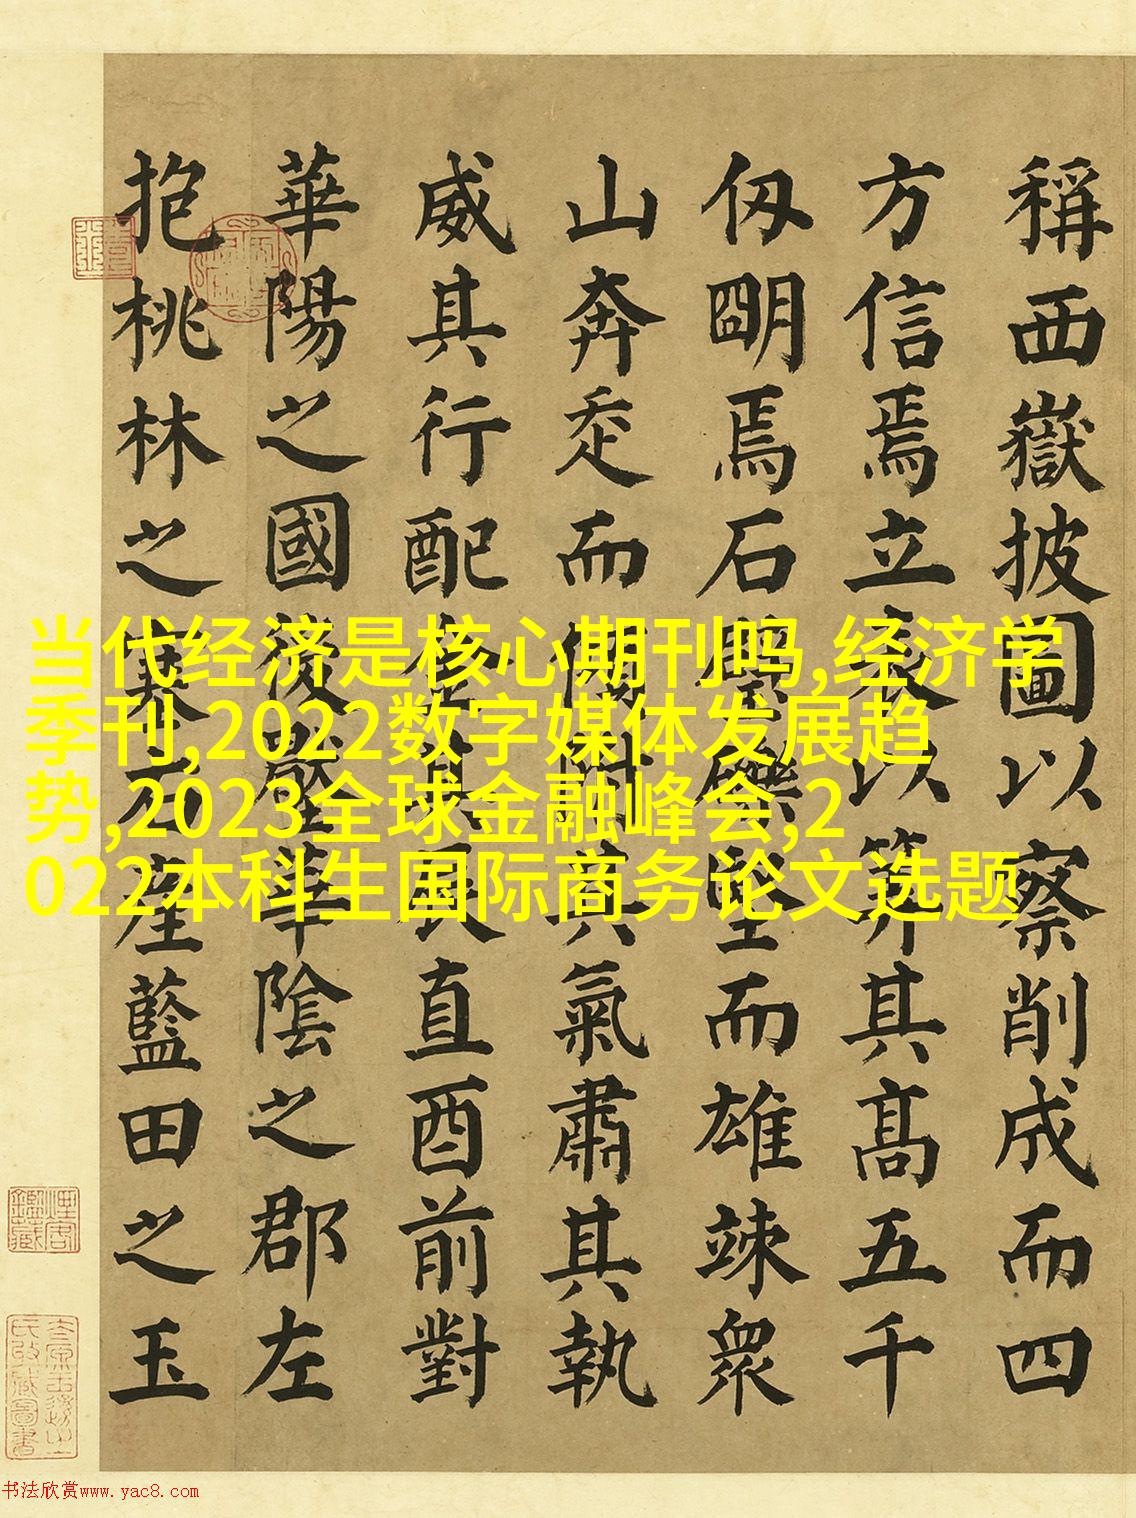 稱西嶽披圖以察削成而四
方信焉立表以筭其髙五千
仭朙焉石壁磔竪而雄竦衆
山奔走而傾附其氣肅其執
威其行配金其辰直酉前對
華陽之國後壓華陰之郡左
抱桃林之塞右産藍田之玉
当代经济是核心期刊吗,经济学
季刊,2022数字媒体发展趋
势,2023全球金融峰会,2
022本科生国际商务论文选题
书法欣赏www.yac8.com